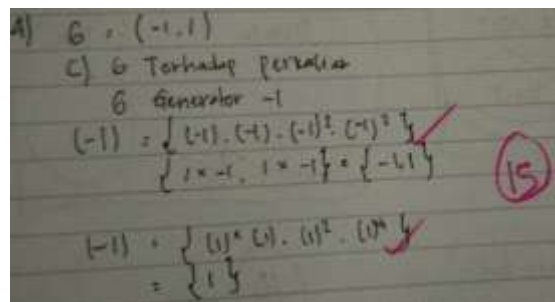 A) G = (-1, 1)
C) G Terhadap perkalian
G Generator -1
(-1) = { (-1) . (-1) . (-1)² . (-1)² }
{ 1 × -1, 1 × -1 } = { -1, 1 }
15
(-1) = { (1)⁰ (1) . (1)² . (1)⁴ }
= { 1 }